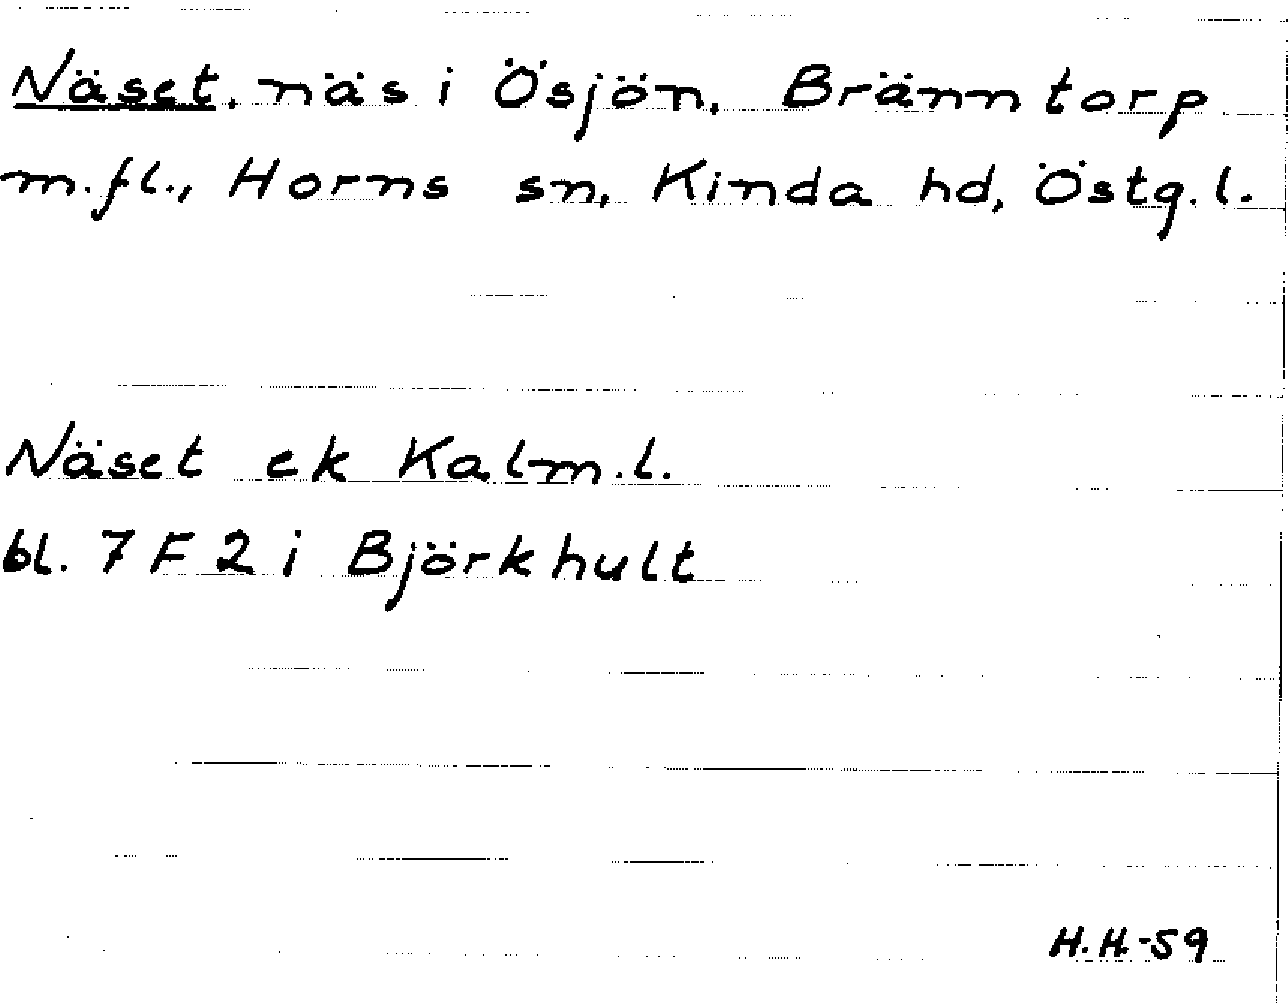 Näset, näs i Ösjön, Bränntorp
m.fl., Horns sn, Kinda hd, Östg.l.
Näset ek Kalm.l.
bl. 7 F 2 i Björkhult
H.H.-59